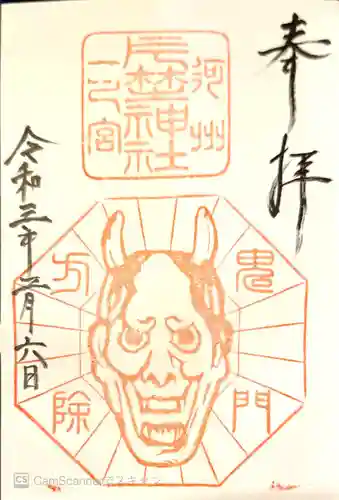 奉拝
河州
片埜神社
一之宮
令和三年二月六日
鬼門
方除
CS CamScannerでスキャン